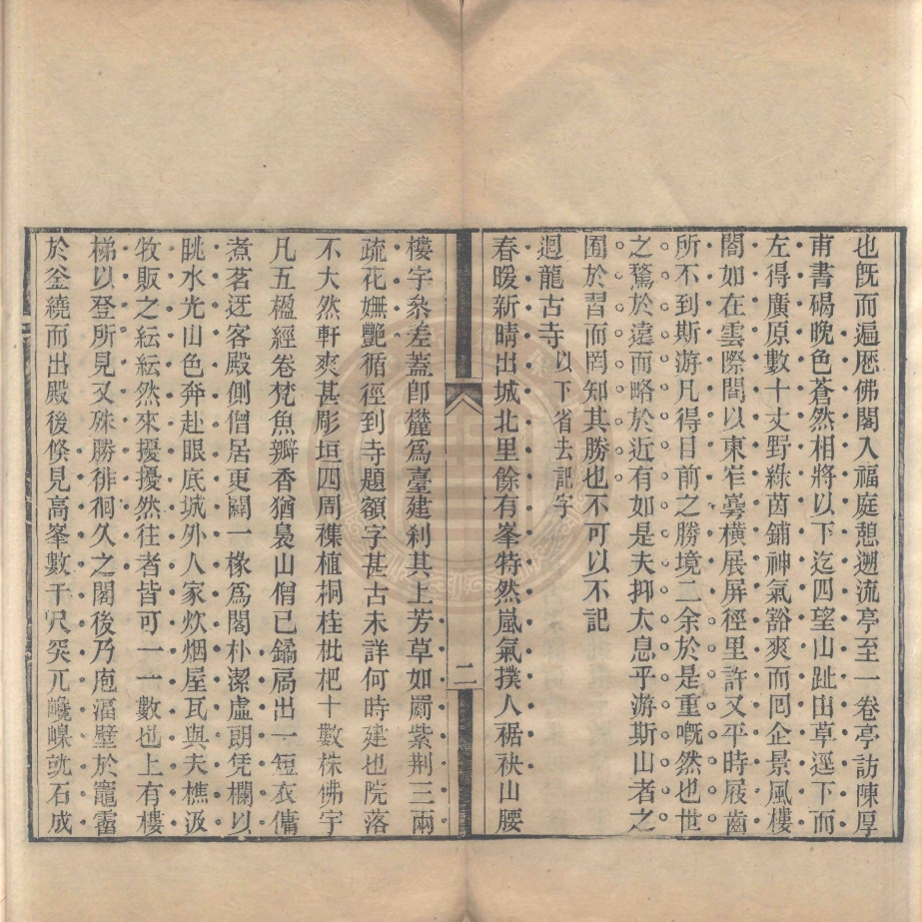 也旣而遍厯佛閣入福庭憩遡流亭至一卷亭訪陳厚
甫書碣晚色蒼然相將以下迄四望山趾出草逕下而
左得廣原數十丈野綠茵鋪神氣豁爽而囘企景風樓
閣如在雲際間以東岝㠋橫展屏徑里許又平時屐齒
所不到斯游凡得目前之勝境二余於是重嘅然也世
之騖於遠而略於近有如是夫抑太息乎游斯山者之
囿於習而罔知其勝也不可以不記
廻龍古寺以下省去記字
春暖新晴出城北里餘有峯特然嵐氣撲人裾袂山腰
二
樓宇叅差蓋卽麓爲臺建刹其上芳草如罽紫荆三兩
疏花嫵艷循徑到寺題額字甚古未詳何時建也院落
不大然軒爽甚彫垣四周襍植桐桂枇杷十數株佛宇
凡五楹經卷梵魚瓣香猶裊山僧已鐍扃出一短衣傭
煮茗迓客殿側僧居更闢一椽爲閣朴潔虛朗凭欄以
眺水光山色奔赴眼底城外人家炊烟屋瓦與夫樵汲
牧販之紜紜然來擾擾然往者皆可一一數也上有樓
梯以登所見又殊勝徘徊久之閣後乃庖湢壁於竈霤
於釜繞而出殿後倐見高峯數千尺突兀巉嵲就石成